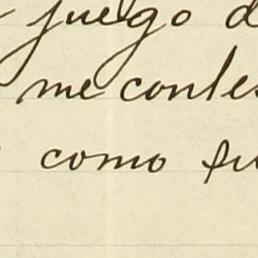 juego d
me contes
como fu